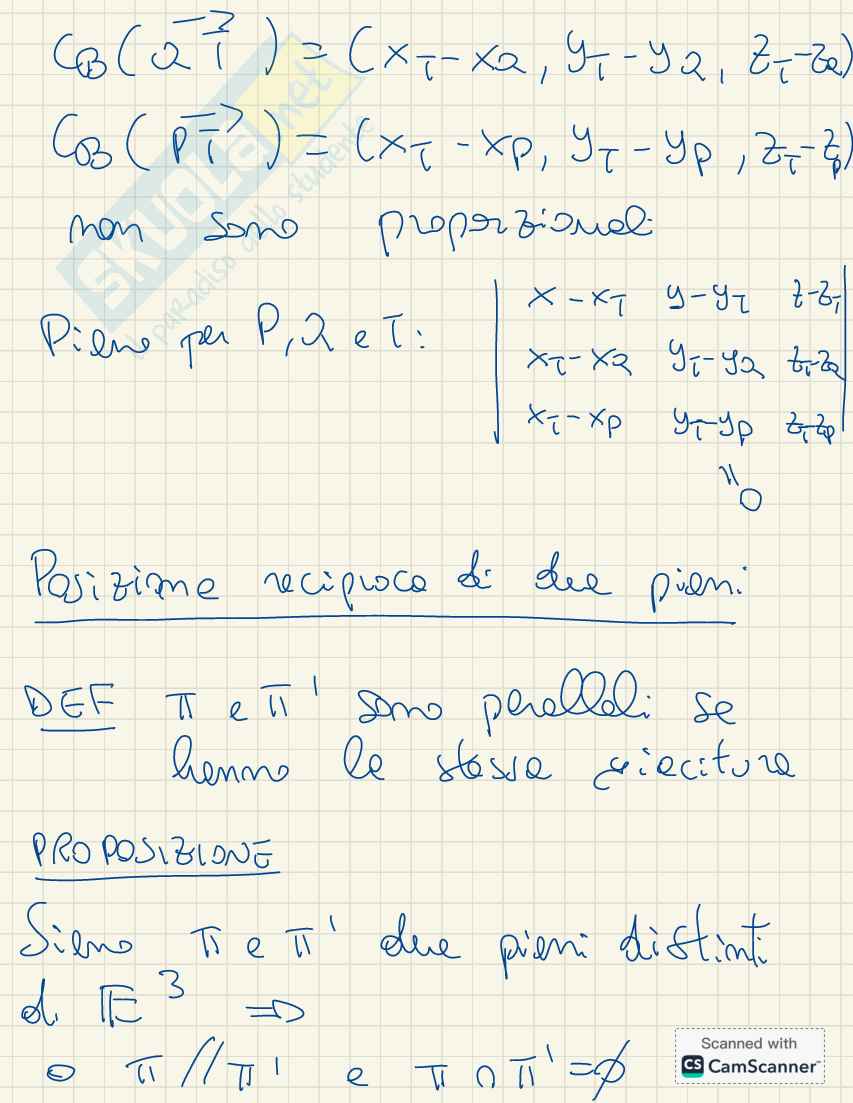 C_B(QT) = (x_T - x_Q, y_T - y_Q, z_T - z_Q)
C_B(PT) = (x_T - x_P, y_T - y_P, z_T - z_P)
non sono proporzionali
Piano per P, Q e T:
| x - x_T y - y_T z - z_T |
| x_T - x_Q y_T - y_Q z_T - z_Q |
| x_T - x_P y_T - y_P z_T - z_P |
= 0
Posizione reciproca di due piani
DEF π e π' sono paralleli se
hanno la stessa giacitura
PROPOSIZIONE
Siano π e π' due piani distinti
di E³ ⇒
o π // π' e π ∩ π' = ∅
SKUOLA.net
il paradiso dello studente
Scanned with
CS CamScanner™